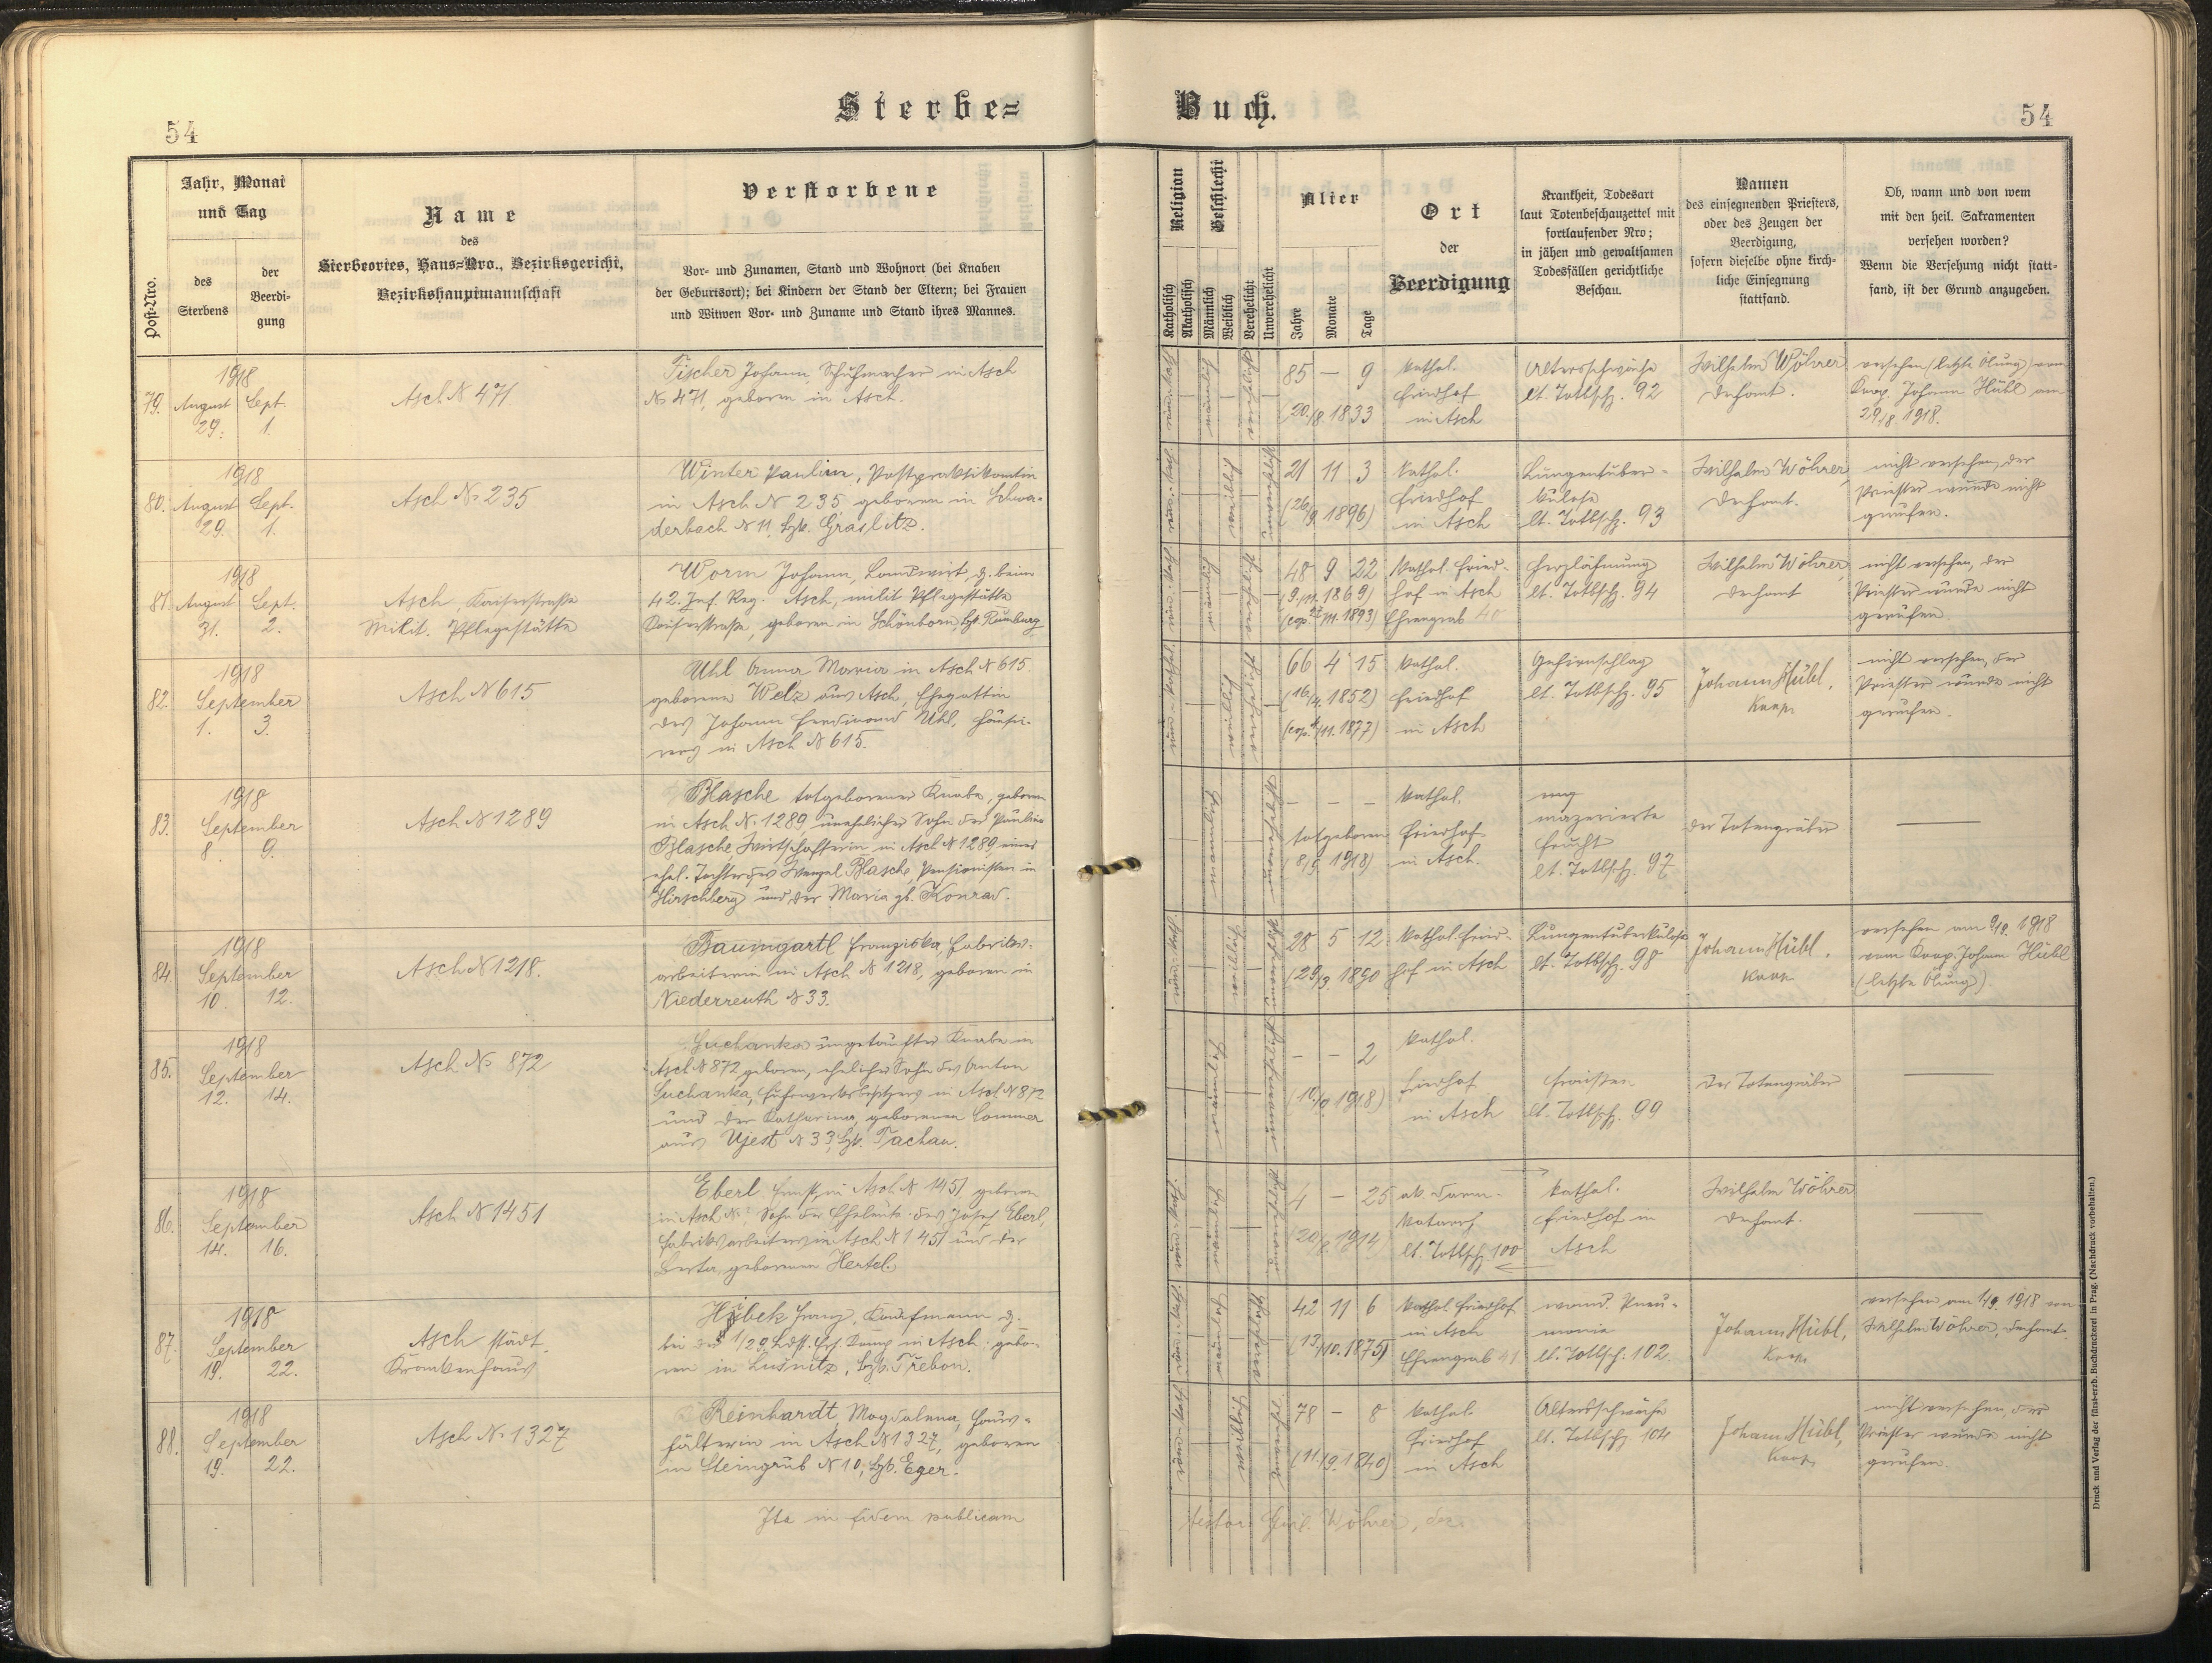 Sterbe=
Buch.
54
54
Post-Nro.
Jahr, Monat
und Tag
des
Sterbens
der
Beerdi-
gung
Name
des
Sterbeortes, Haus=Nro., Bezirksgericht,
Bezirkshauptmannschaft
Verstorbene
Vor- und Zunamen, Stand und Wohnort (bei Knaben
der Geburtsort); bei Kindern der Stand der Eltern; bei Frauen
und Witwen Vor- und Zuname und Stand ihres Mannes.
Religion
Katholisch
Akatholisch
Geschlecht
Männlich
Weiblich
Verehelicht
Unverehelicht
Alter
Jahre
Monate
Tage
Ort
der
Beerdigung
Krankheit, Todesart
laut Totenbeschauzettel mit
fortlaufender Nro;
in jähen und gewaltsamen
Todesfällen gerichtliche
Beschau.
Namen
des einsegnenden Priesters,
oder des Zeugen der
Beerdigung,
sofern dieselbe ohne kirch-
liche Einsegnung
stattfand.
Ob, wann und von wem
mit den heil. Sakramenten
versehen worden?
Wenn die Versehung nicht statt-
fand, ist der Grund anzugeben.
79.
1918
August Sept.
29. 1.
Asch N 471
Tischer Johann, Schuhmacher in Asch
N 471, geboren in Asch.
85 — 9
(20./8. 1833
kathol.
Friedhof
in Asch
Altersschwäche
lt. Totbsch. 92
Wilhelm Wöhrer
Dechant.
versehen (letzte Ölung) vom
Koop. Johann Hübl am
29./8. 1918.
80.
1918
August Sept.
29. 1.
Asch N. 235
Winter Pauline, Postpraktikantin
in Asch N 235 geboren in Schwa-
derbach N 11, Bzk. Graslitz.
21 11 3
(26/9. 1896)
kathol.
Friedhof
in Asch
Lungentuber-
kulose
lt. Totbsch. 93
Wilhelm Wöhrer,
Dechant.
nicht versehen, der
Priester wurde nicht
gerufen.
81.
1918
August Sept.
31. 2.
Asch, Kaiserstraße
Milit. Pflegestätte
Worm Johann, Landwirt, z. beim
42. Inf. Reg. Asch, milit Pflegestätte
Kaiserstraße, geboren in Schönborn, Bzk. Rumburg
48 9 22
1869)
1893)
Kathol. Fried-
hof in Asch
Ehrengrab 40
Herzlähmung
lt. Totbsch. 94
Wilhelm Wöhrer,
Dechant
nicht versehen, der
Priester wurde nicht
gerufen.
82.
1918
September
1. 3.
Asch N 615
Uhl Anna Maria in Asch N 615.
geborene Welz aus Asch, Ehegattin
des Johann Ferdinand Uhl, Hausi-
rers in Asch N 615.
66 4 15
(16/4. 1852)
11. 1877)
kathol.
Friedhof
in Asch
Gehirnschlag
lt. Totbsch. 95
Johann Hübl,
Koop.
nicht versehen, der
Priester wurde nicht
gerufen.
83.
1918
September
8. 9.
Asch N 1289
Blasche totgeborener Knabe, geboren
in Asch N. 1289, unehelicher Sohn der Pauline
Blasche, Wirtschafterin in Asch N 1289, einer
ehel. Tochter des Wenzel Blasche, Pensionisten in
Hirschberg und der Maria gb. Konrad.
— — —
totgeboren
(8/9. 1918)
kathol.
Friedhof
in Asch.
mazerierte
Frucht
lt. Totbsch. 97
der Totengräber
84.
1918
September
10. 12.
Asch N 1218.
Baumgartl Franziska, Fabriks-
arbeiterin in Asch N 1218, geboren in
Niederreuth N 33.
28 5 12
(29/3. 1890
kathol. Fried-
hof in Asch
Lungentuberkulose
lt. Totbsch. 98
Johann Hübl.
Koop.
versehen am 9/9. 1918
vom Koop. Johann Hübl
(letzte Ölung)
85.
1918
September
12. 14.
Asch N. 872
Suchanka ungetaufter Knabe in
Asch N 872 geboren, ehelicher Sohn des Anton
Suchanka, Fuhrwerksbesitzers in Asch N 872
und der Katharina, geborenen Sommer
aus Ujest N 33, Bzk. Tachau.
— — 2
(10/9 1918)
kathol.
Friedhof
in Asch
Fraisen
lt. Totbsch. 99
der Totengräber
86.
1918
September
14. 16.
Asch N 1451
Eberl Ernst, in Asch N 1451, geboren
in Asch N., Sohn der Eheleute des Josef Eberl,
Fabriksarbeiters in Asch N 1451 und der
Berta geborenen Hertel.
4 — 25
1914)
ak. Darm-
katarrh
lt. Totbsch. 100
kathol.
Friedhof in
Asch
Wilhelm Wöhrer
Dechant.
87.
1918
September
19. 22.
Asch städt.
Krankenhaus
Franz, Kaufmann z.
bei der 1/29. Ldst. Ers. Komp in Asch; gebo-
ren in Lusnitz, Bzk. Třebon.
42 11 6
(13/10. 1875)
kathol Friedhof
in Asch
Ehrengrab 41
Pneu-
monie
lt. Totbsch. 102
Johann Hübl,
Koop.
versehen am 1918 von
Wilhelm Wöhrer, Dechant
88.
1918
September
19. 22.
Asch N. 1327
Reinhardt Magdalena, Haus-
hälterin in Asch N 1327, geboren
in Steingrub N 10, Bzk. Eger.
78 — 8
(11./9. 1840)
kathol.
Friedhof
in Asch
Altersschwäche
lt. Totbsch. 104
Johann Hübl,
Koop.
nicht versehen, der
Priester wurde nicht
gerufen.
Ita in fidem publicam
testor Guil. Wöhrer, dec.
Druck und Verlag der fürst-erzb. Buchdruckerei in Prag. (Nachdruck vorbehalten.)